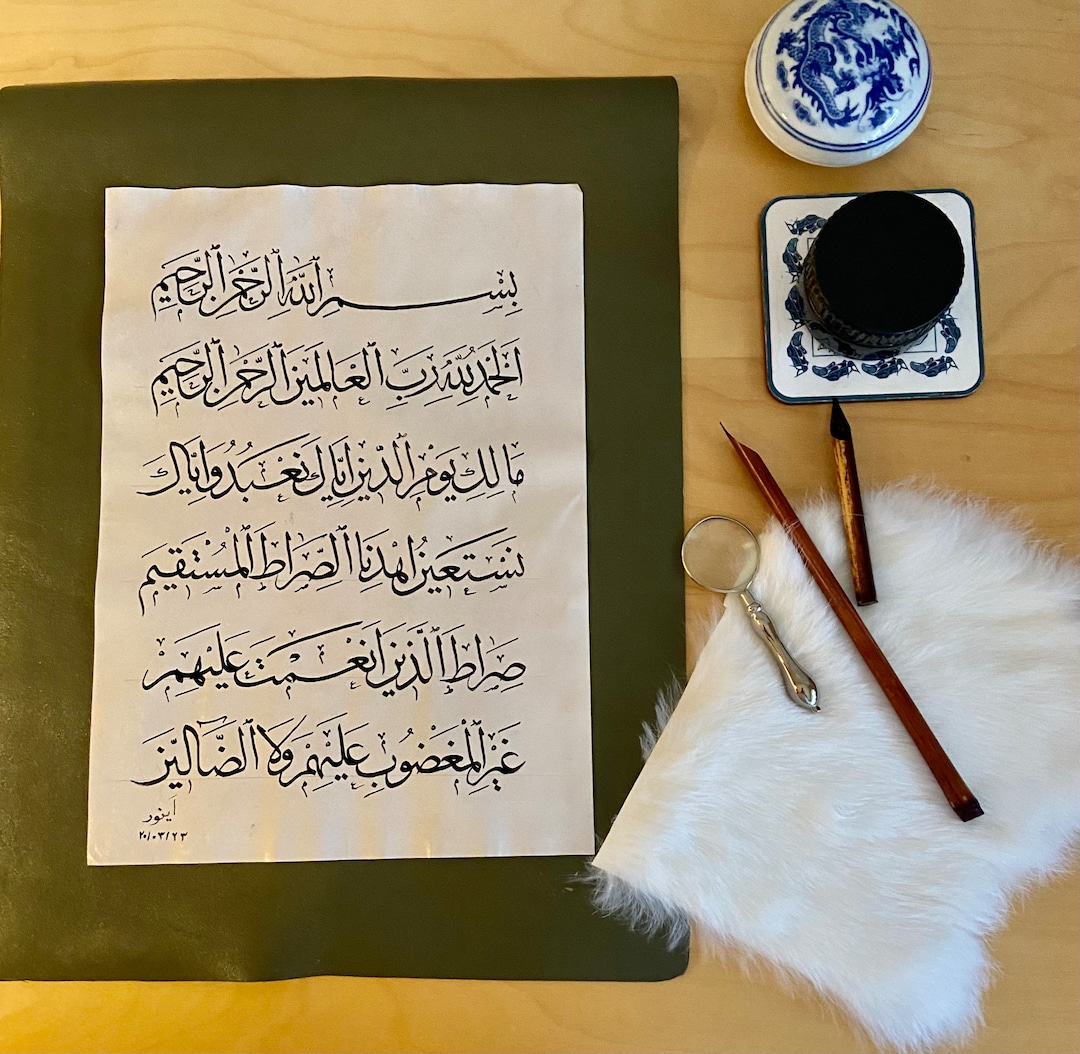 بِسْمِ ٱللّٰهِ ٱلرَّحْمٰنِ ٱلرَّحِيمِ
اَلْحَمْدُ لِلّٰهِ رَبِّ ٱلْعَالَمِينَ ٱلرَّحْمٰنِ ٱلرَّحِيمِ
مَالِكِ يَوْمِ ٱلدِّينِ اِيَّاكَ نَعْبُدُ وَاِيَّاكَ
نَسْتَعِينُ اِهْدِنَا ٱلصِّرَاطَ ٱلْمُسْتَقِيمَ
صِرَاطَ ٱلَّذِينَ اَنْعَمْتَ عَلَيْهِمْ
غَيْرِ ٱلْمَغْضُوبِ عَلَيْهِمْ وَلَا ٱلضَّالِّينَ
اينور
٢٠/٠٣/٢٣